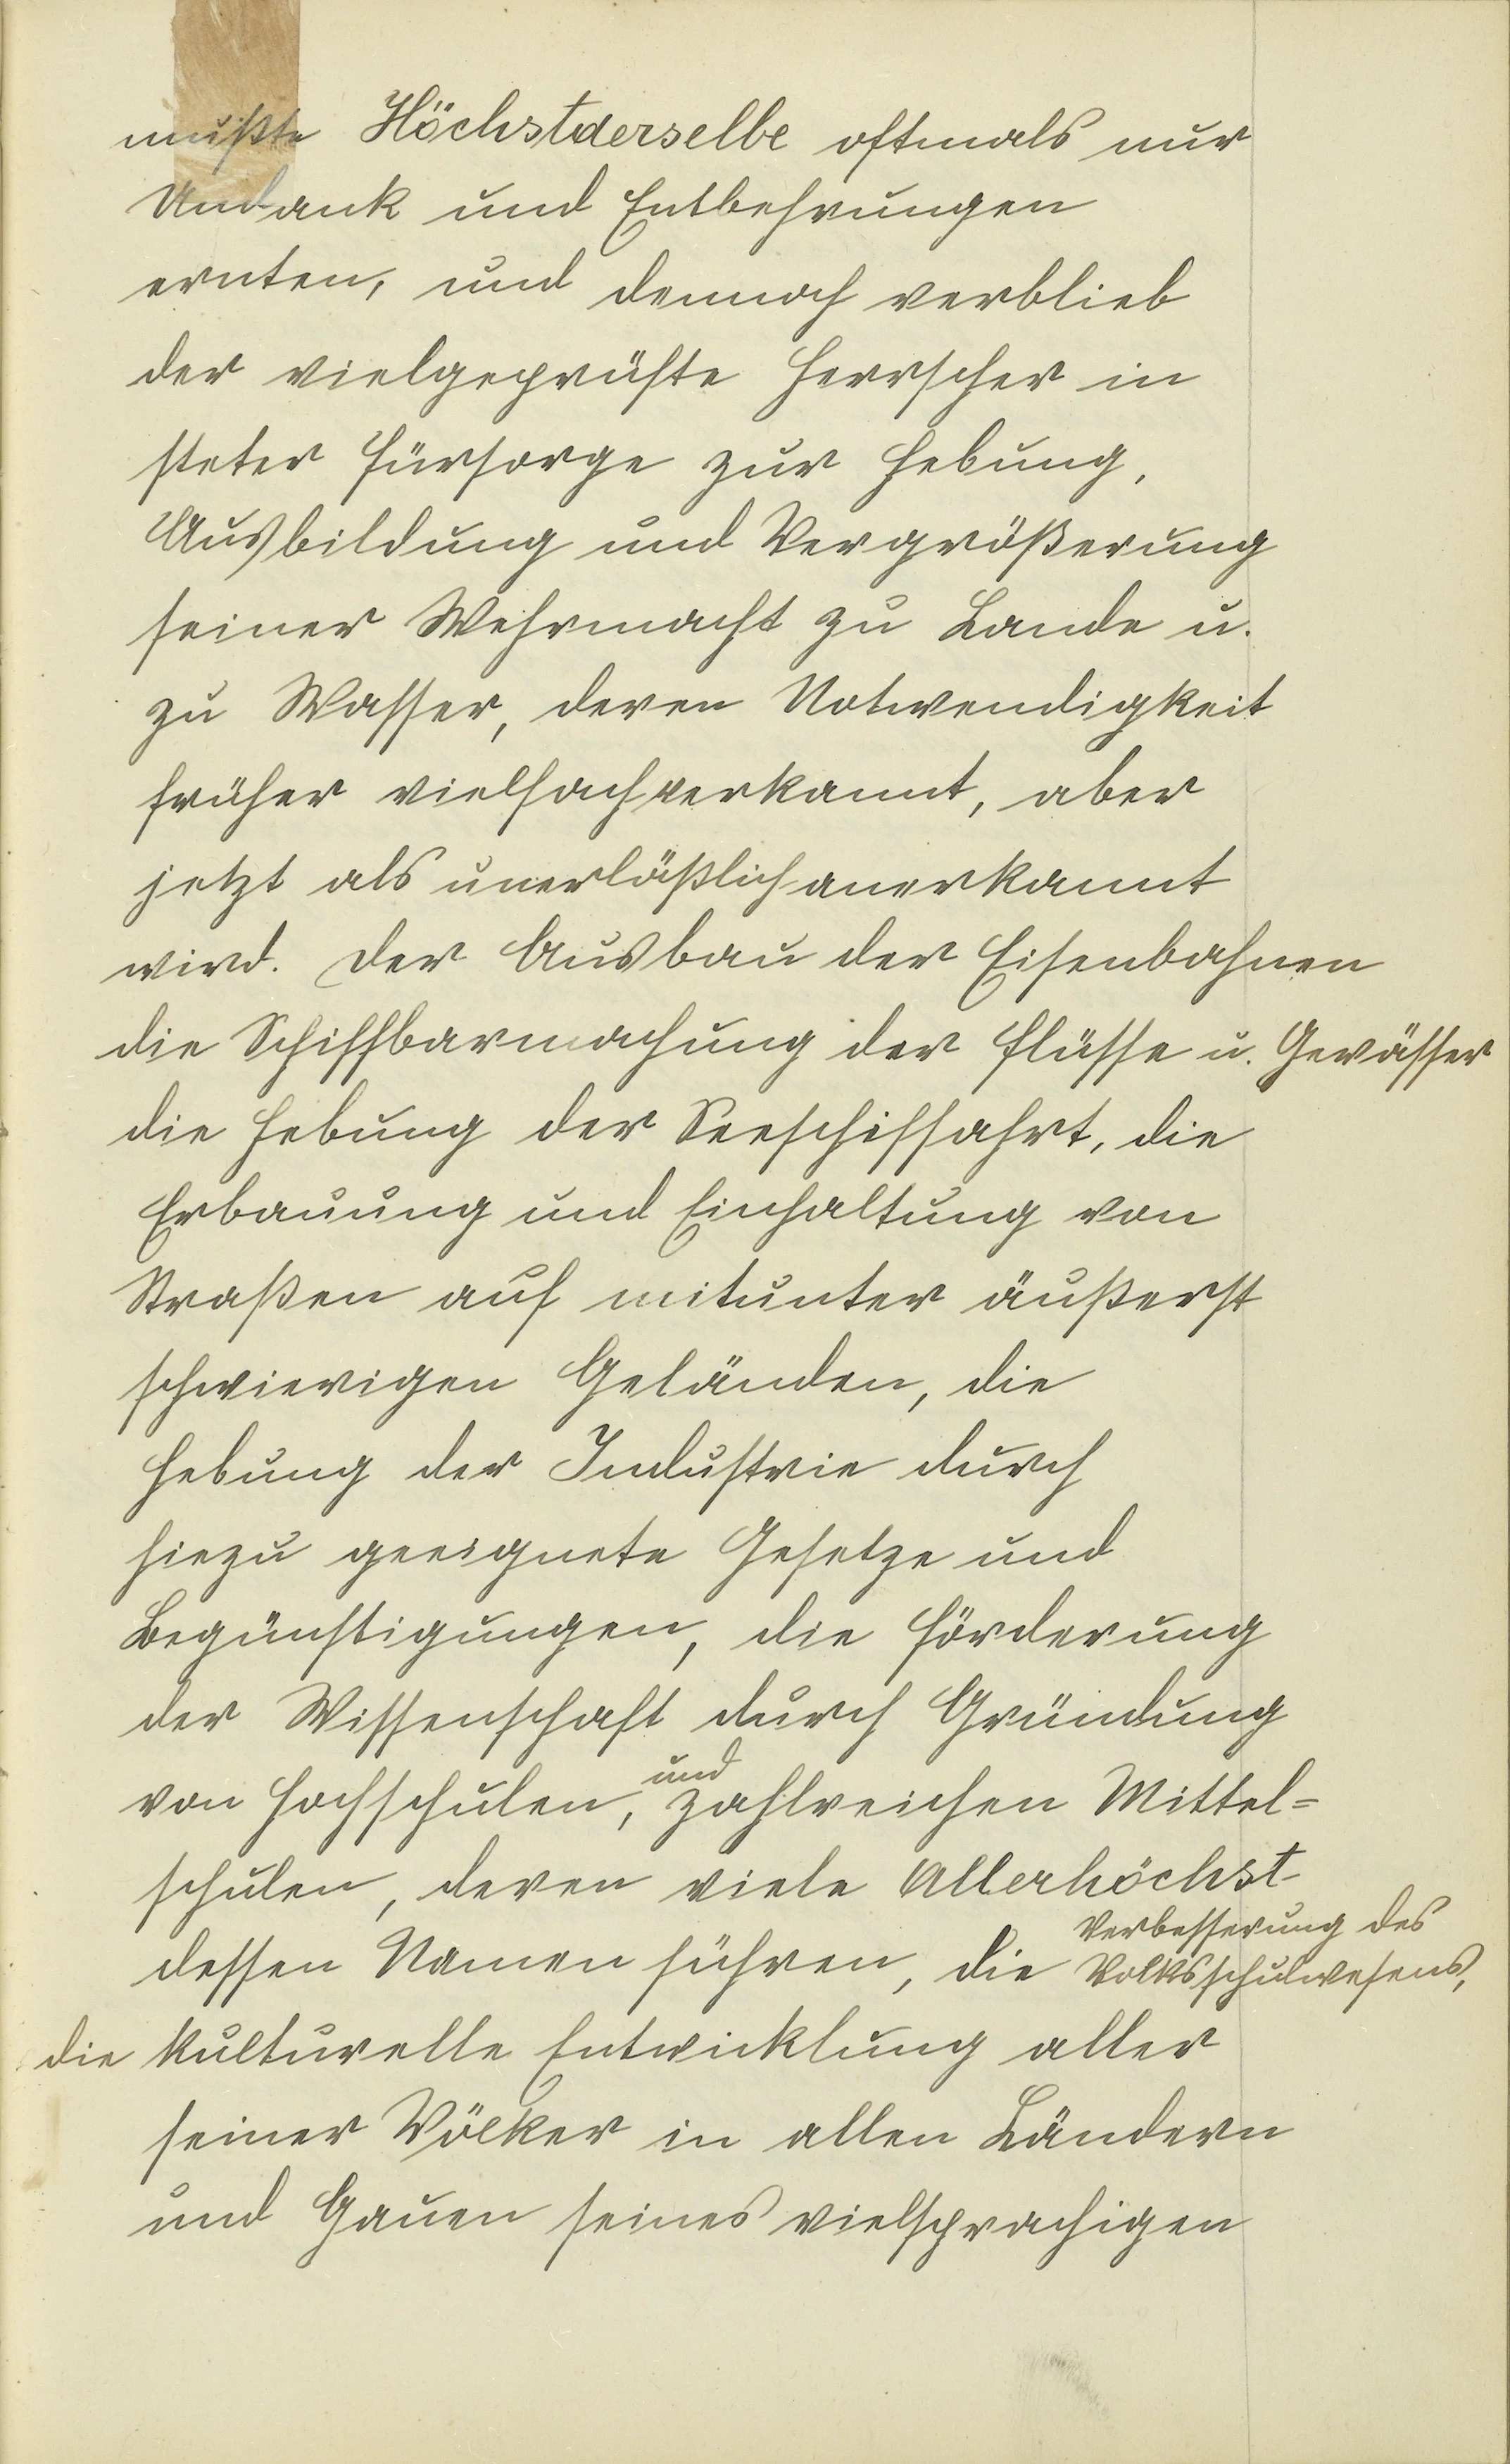 mußte Höchstderselbe oftmals nur
Undank und Entbehrungen
ernten, und dennoch verblieb
der vielgeprüfte Herrscher in
steter Fürsorge zur Hebung,
Ausbildung und Vergrößerung
seiner Wehrmacht zu Lande u.
zu Wasser, deren Notwendigkeit
früher vielfach verkannt, aber
jetzt als unerläßlich anerkannt
wird. Der Ausbau der Eisenbahnen
die Schiffbarmachung der Flüsse u. Gewässer
die Hebung der Seeschiffahrt, die
Erbauung und Einhaltung von
Straßen auf mitunter äußerst
schwierigen Geländen, die
Hebung der Industrie durch
hiezu geeignete Gesetze und
Begünstigungen, die Förderung
der Wissenschaft durch Gründung
und
von Hochschulen, zahlreichen Mittel=
schulen, deren viele Allerhöchst-
Verbesserung des
dessen Namen führen, die Volksschulwesens,
die kulturelle Entwicklung aller
seiner Völker in allen Ländern
und Gauen seines vielsprachigen